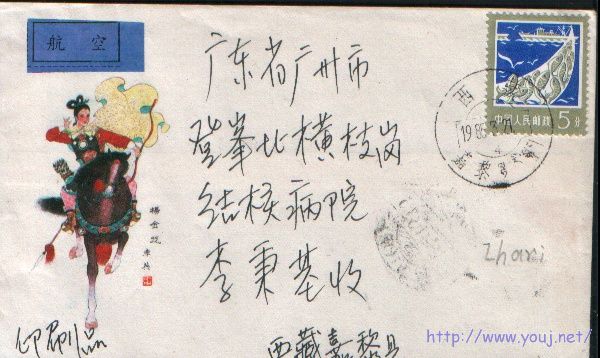 航空
广东省广州市
登峯北横枝岗
结核病院
李秉基收
中国人民邮政
5分
西藏
嘉黎
楊金花
Zhari
印刷品
西藏嘉黎县
http://www.youj.net/